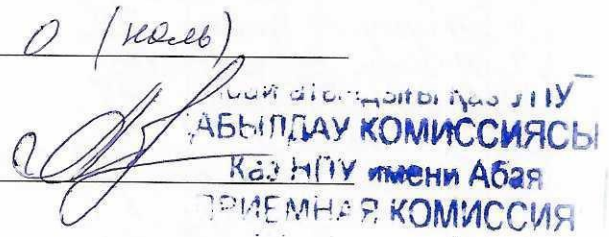 0 (ноль)
атындағы Қаз ПУ
ҚАБЫЛДАУ КОМИССИЯСЫ
Каз НПУ имени Абая
ПРИЕМНАЯ КОМИССИЯ